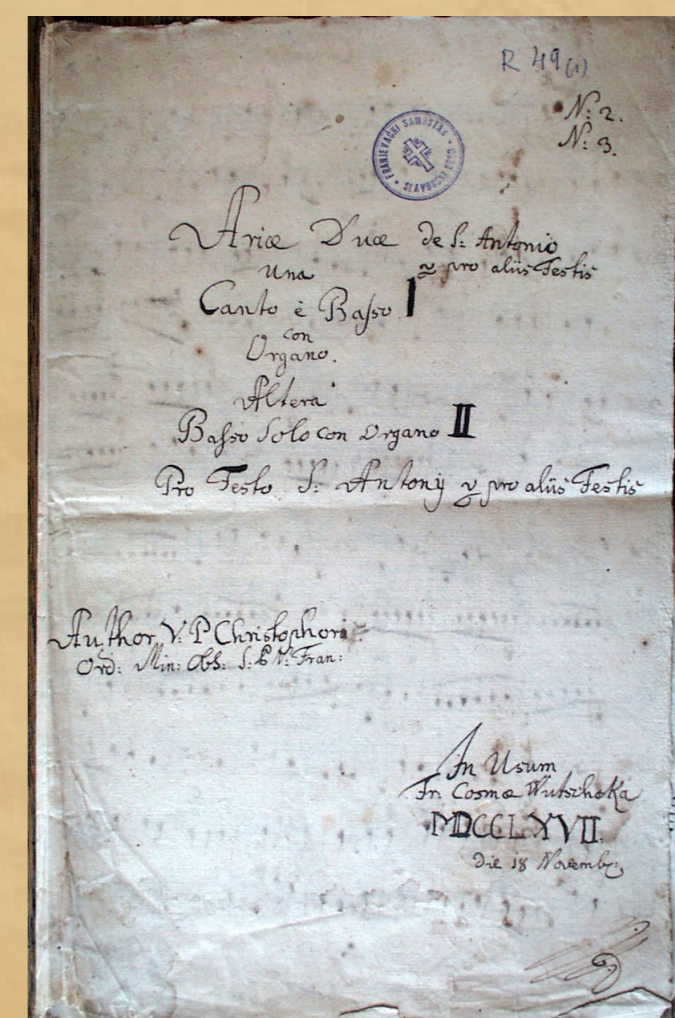 R 49 (1)
N: 2.
N: 3.
FRANJEVAČKI SAMOSTAN SLAVONSKI BROD
Ariæ Duæ de S: Antonio
Una & pro aliis Festis
Canto è Basso I
con
Organo.
Altera
Basso Solo con Organo II
Pro Festo S: Antonÿ & pro aliis Festis
Author V. P Christophori
Ord: Min: Obs: S: P N: Fran:
In Usum
Fr. Cosmæ Wutschoka
MDCCLXVII.
Die 18 Novemb: